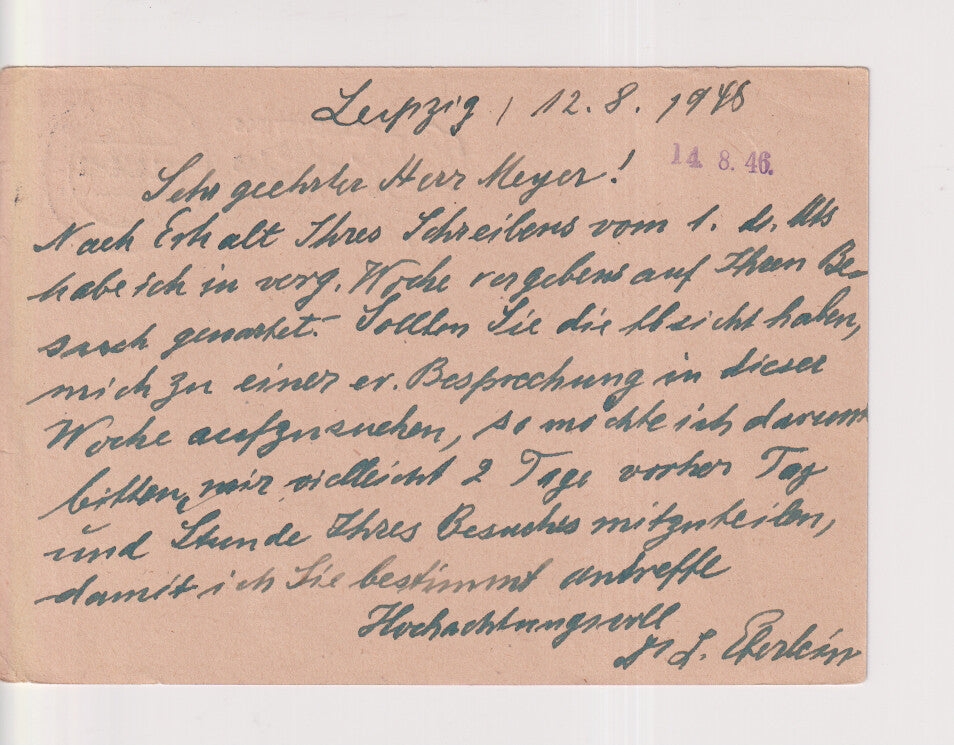 Leipzig, 12. 8. 1946
14. 8. 46.
Sehr geehrter Herr Meyer!
Nach Erhalt Ihres Schreibens vom 1. ds. Mts
habe ich in verg. Woche vergebens auf Ihren Be-
such gewartet. Sollten Sie die Absicht haben,
mich zu einer er. Besprechung in dieser
Woche aufzusuchen, so möchte ich darum
bitten, mir vielleicht 2 Tage vorher Tag
und Stunde Ihres Besuches mitzuteilen,
damit ich Sie bestimmt antreffe
Hochachtungsvoll
L. Eberlein